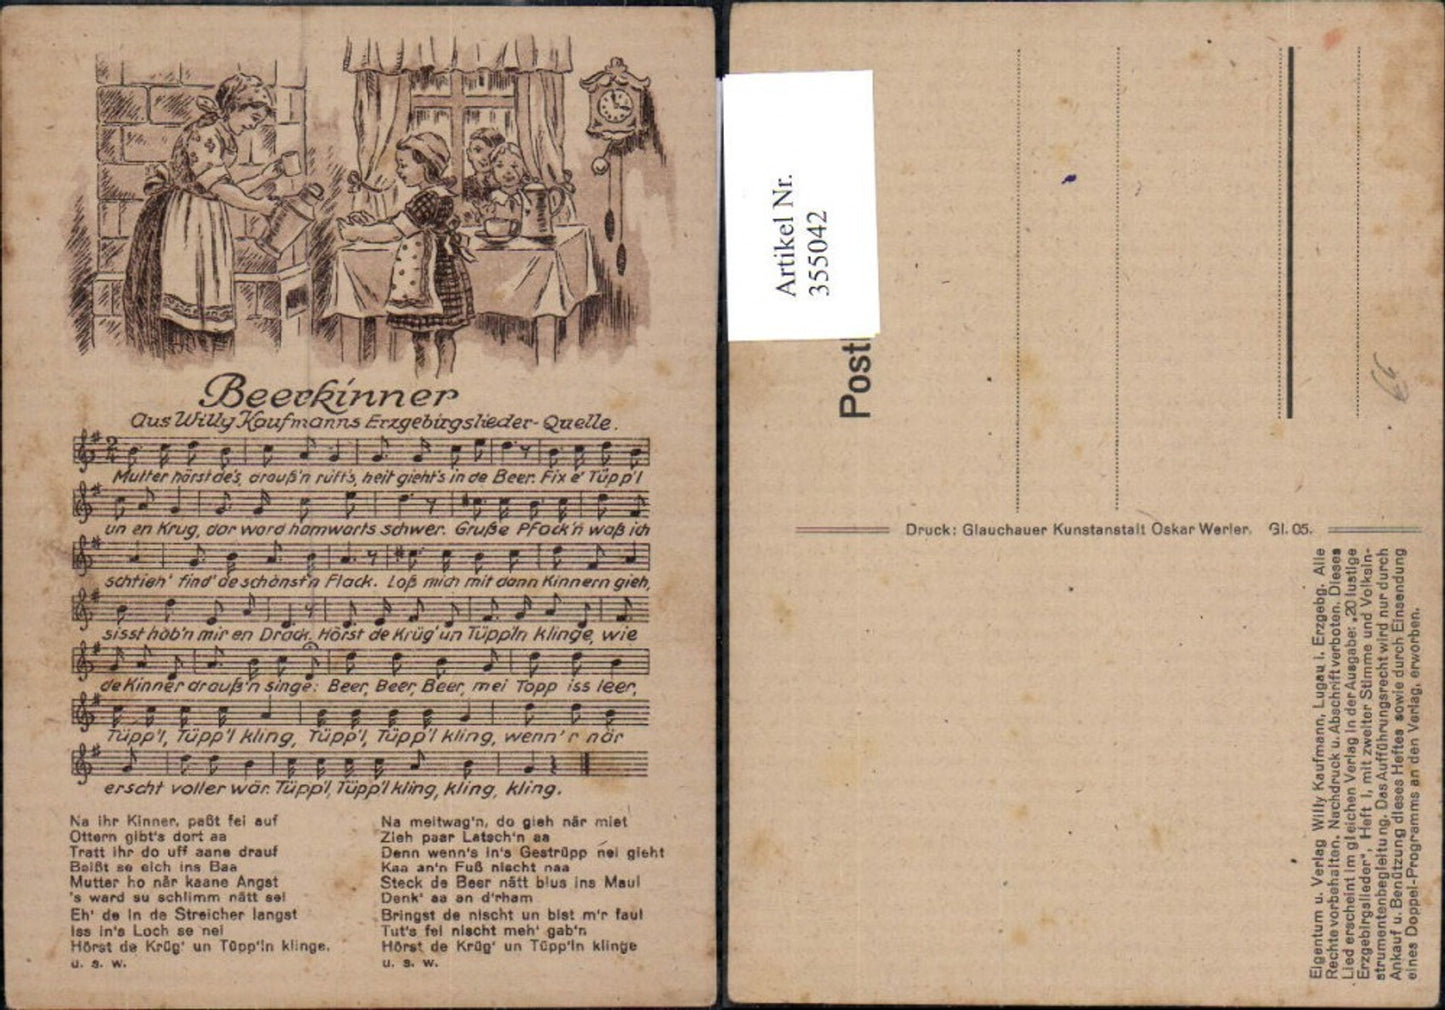 Beerkinner
Aus Willy Kaufmanns Erzgebirgslieder-Quelle.
Mutter hörst de's, drauß'n ruft's, heit gieht's in de Beer. Fix e' Tüpp'l
un en Krug, dar ward hamwarts schwer. Gruße Pfack'n waß ich
schtieh' find' de schönst'n Flack. Loß mich mit dann Kinnern gieh,
sisst hob'n mir en Drack. Hörst de Krüg' un Tüpp'ln klinge, wie
de Kinner drauß'n singe: Beer, Beer, Beer, mei Topp iss leer,
Tüpp'l, Tüpp'l kling, Tüpp'l, Tüpp'l kling, wenn'r när
erscht voller wär. Tüpp'l, Tüpp'l kling, kling, kling.
Na ihr Kinner, paßt fei auf
Ottern gibt's dort aa
Tratt ihr do uff aane drauf
Beißt se eich ins Baa
Mutter ho när kaane Angst
's ward su schlimm nätt sei
Eh' de in de Streicher langst
Iss in's Loch se nei
Hörst de Krüg' un Tüpp'ln klinge.
u. s. w.
Na meitwag'n, do gieh när miet
Zieh paar Latsch'n aa
Denn wenn's in's Gestrüpp nei gieht
Kaa an'n Fuß nischt naa
Steck de Beer nätt blus ins Maul
Denk' aa an d'rham
Bringst de nischt un bist m'r faul
Tut's fei nischt meh' gab'n
Hörst de Krüg' un Tüpp'ln klinge
u. s. w.
Artikel Nr.
355042
Post
Druck: Glauchauer Kunstanstalt Oskar Werler. Gl. 05.
Eigentum u. Verlag Willy Kaufmann, Lugau i. Erzgebg. Alle
Rechte vorbehalten. Nachdruck u. Abschrift verboten. Dieses
Lied erscheint im gleichen Verlag in der Ausgabe: „20 lustige
Erzgebirgslieder", Heft I, mit zweiter Stimme und Volksin-
strumentenbegleitung. Das Aufführungsrecht wird nur durch
Ankauf u. Benützung dieses Heftes sowie durch Einsendung
eines Doppel-Programms an den Verlag, erworben.